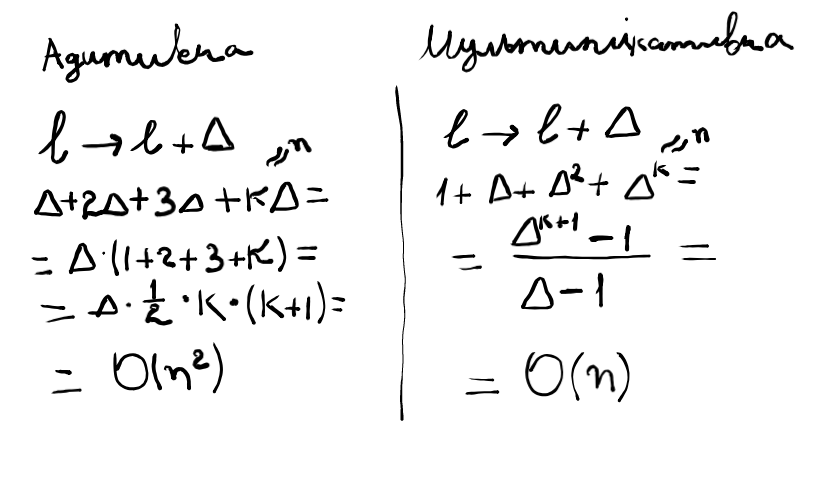 Адитивна
l → l + Δ
≈n
Δ+2Δ+3Δ+KΔ=
= Δ·(1+2+3+K)=
= Δ·1/2·K·(K+1)=
= O(n²)
Мультиплікативна
l → l + Δ
≈n
1+Δ+Δ²+Δᴷ=
= (Δᴷ⁺¹ − 1)/(Δ − 1) =
= O(n)